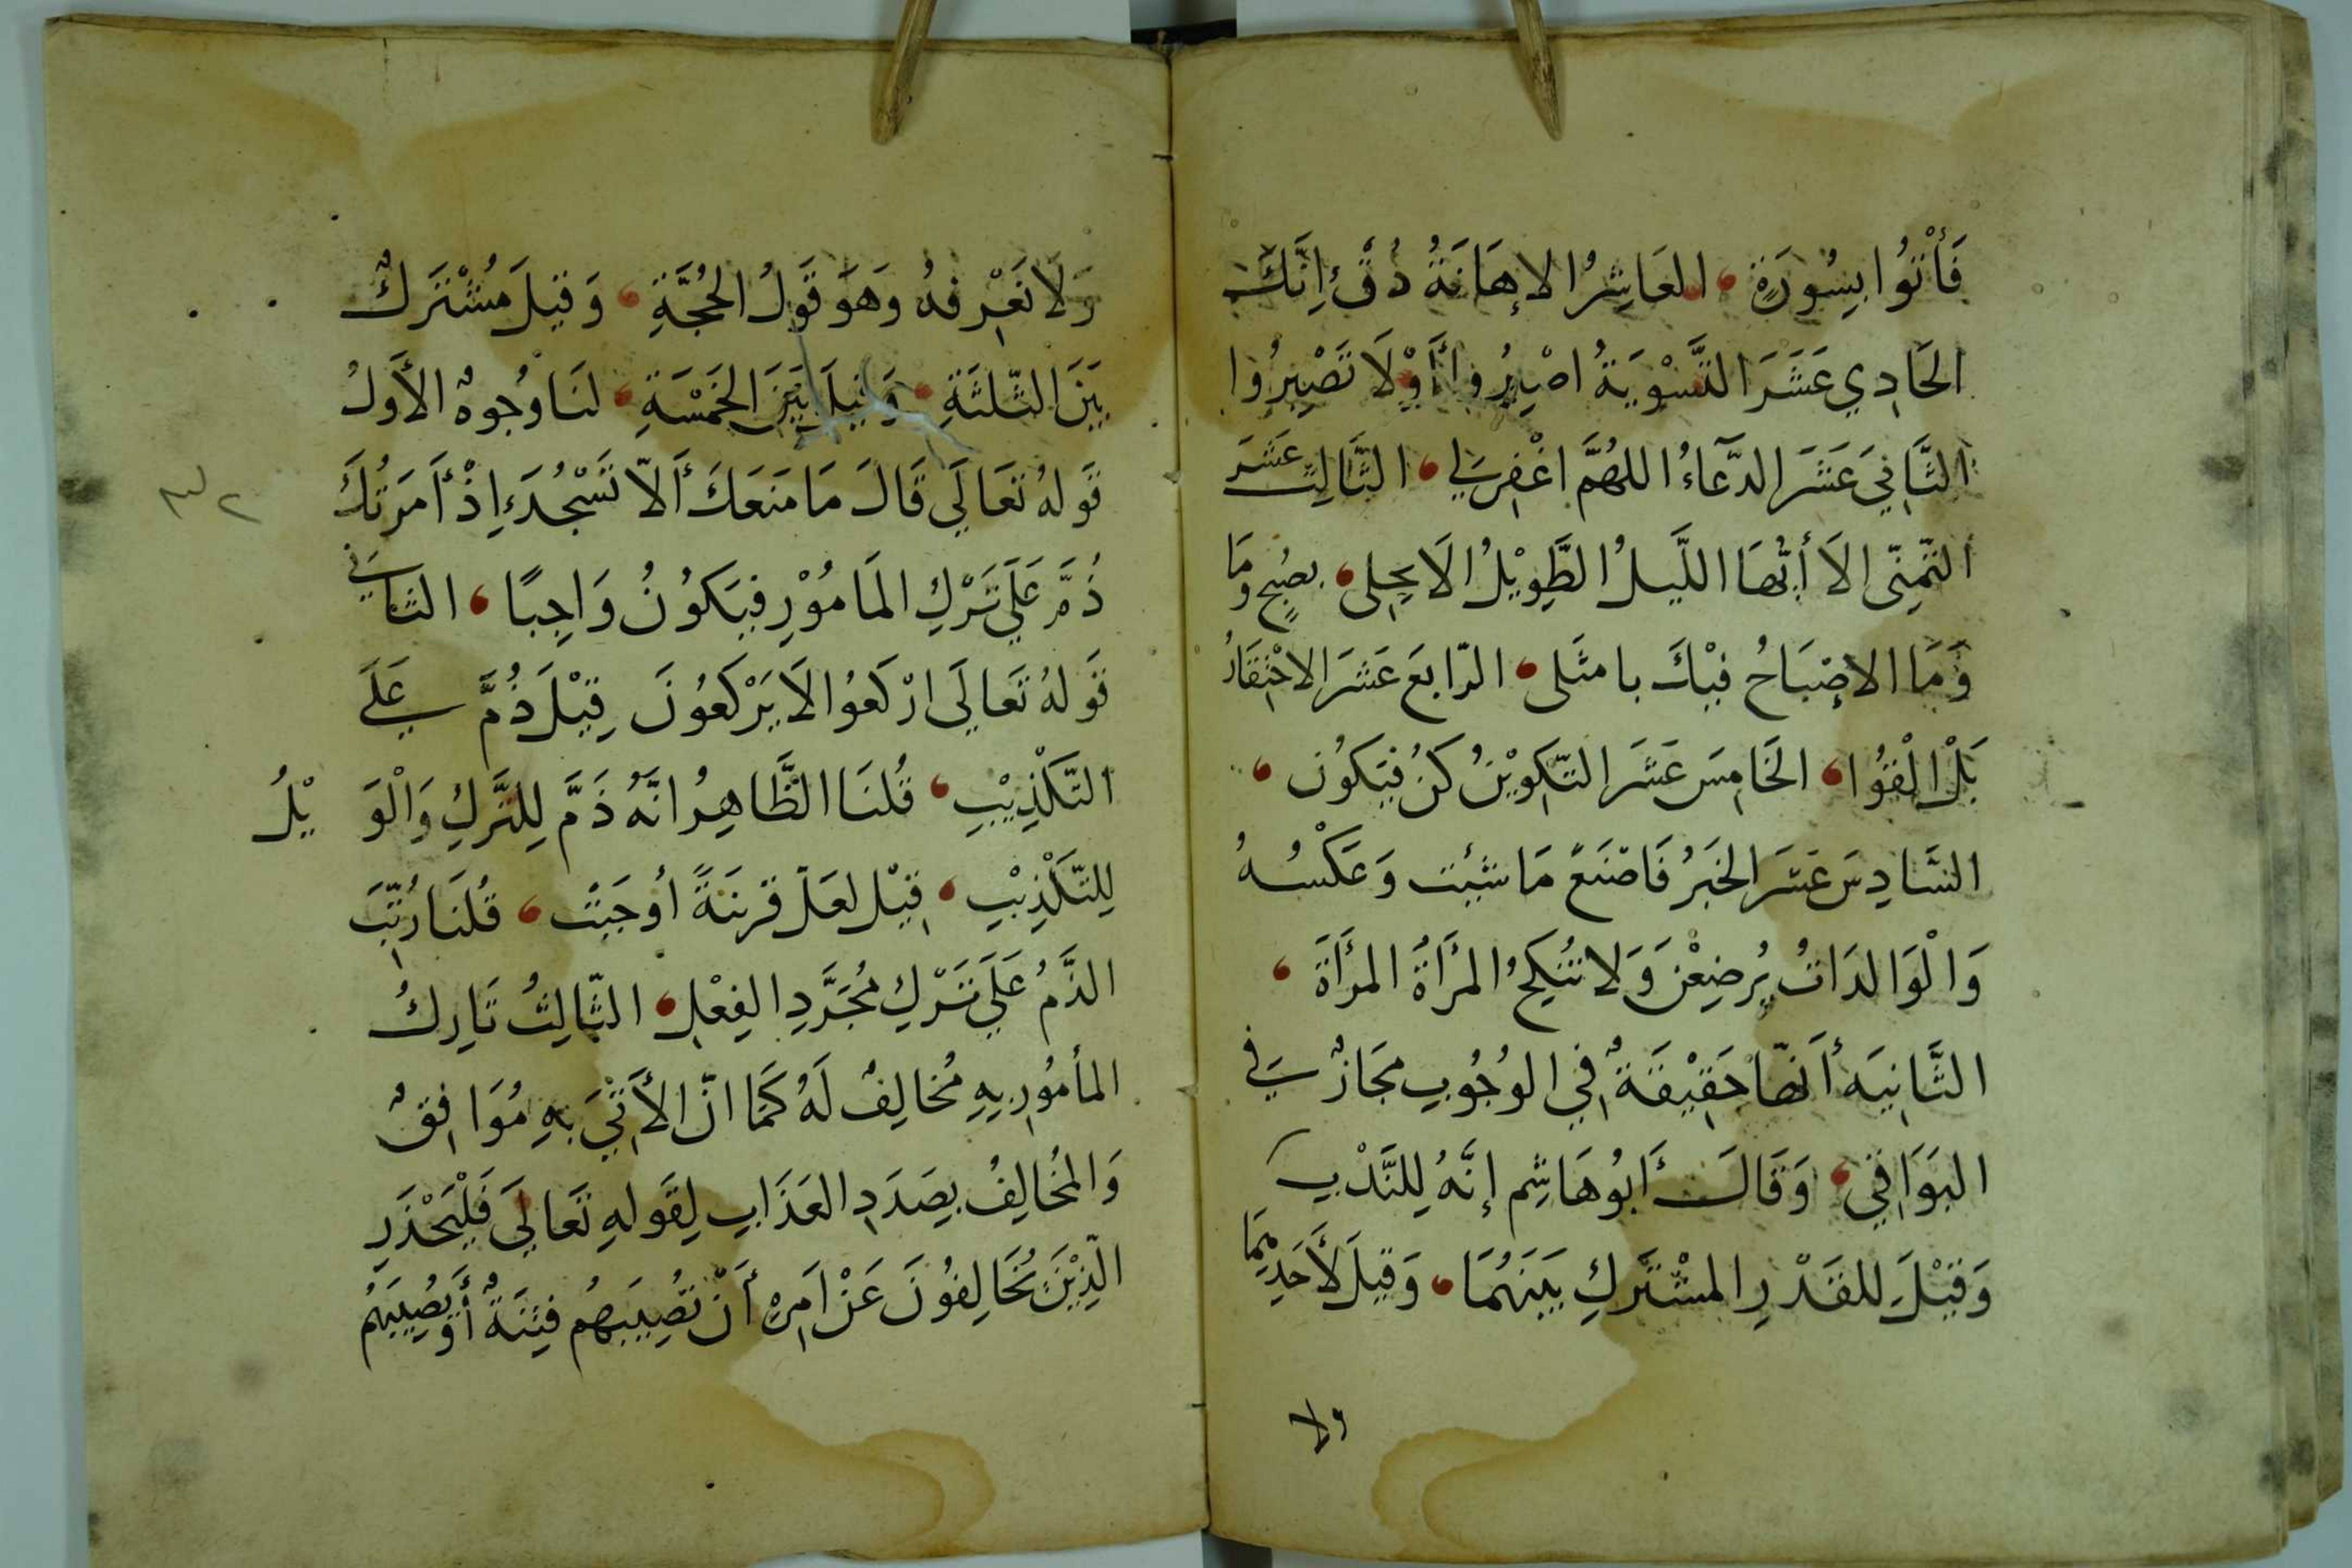 فَأْتُوا بِسُورَةٍ، العَاشِرُ الإهَانَةُ ذُقْ إِنَّكَ
الحَادِي عَشَرَ التَّسْوِيَةُ اصْبِرُوا أَوْ لَا تَصْبِرُوا
الثَّانِي عَشَرَ الدُّعَاءُ اللهُمَّ اغْفِرْ لِي، الثَّالِثَ عَشَرَ
التَّمَنِّي الاَ أيُّهَا اللَّيلُ الطَّوِيْلُ الاَ انجلى، بصُبحٍ وَمَا
وَمَا الاِصْبَاحُ فِيْكَ بامثَلى، الرّابعَ عَشَرَ الاحْتِقَارُ
بَلْ الْقُوا، الخَامِسَ عَشَرَ التّكوِيْنُ كنْ فَيَكوُن،
السَّادِسَ عَشَرَ الخَبَرُ فَاصْنَعْ مَا شئِت وَعَكْسُهُ
وَالْوَالدَاتُ يُرضِعْنَ وَلا تُنْكِحُ المرْأَةُ المرْأَةَ،
الثَّانِيَه أَنّها حَقِيْقَةٌ فِي الوُجُوبِ مَجَازٌ فِي
البَوَاقِي، وَقَالَ أَبُو هَاشِم إنَّهُ لِلنَّدْبِ
وَقِيْلَ للقَدْرِ المشْتَركِ بَيْنَهُمَا، وَقِيلَ لأَحَدِهِمَا
ولا
وَلَا نَعْرِفهُ وَهوَ قَولُ الحُجَّةِ، وَقيلَ مُشْتَرَكٌ
بَيَنَ الثّلثَةِ، وَقيلَ بَيَنَ الخَمْسَةِ، لنَا وُجوهٌ الأَولُ
قَولهُ تَعَالَي قَالَ مَا مَنَعَكَ أَلاّ تَسْجُدَ إِذْ أَمَرتُكَ
ذُمَّ عَلَي تَرْكِ المَامُوْرِ فيَكوُنُ وَاجِبًا، الثاني
قَولهُ تَعَالَي ارْكعُوا لاَ يَرْكَعُونَ قِيْلَ ذُمَّ عَلَي
التّكْذِيْبِ، قُلنَا الظَّاهِرُ انَّهُ ذَمَّ لِلتَّركِ وَالْوَيْلُ
لِلتّكْذِيْبِ، قِيْل لعَلّ قرينَةً أوجَبَتْ، قُلنَا رُتّبَ
الذَّمُ عَلَي تَرْكِ مُجَرَّدِ الفِعْلِ، الثّالِثُ تَارِكُ
المأمُورِ بِهِ مُخالِفٌ لَهُ كَمَا انّ الأتِيَ بهِ مُوَافِقٌ
وَالمُخَالِفُ بِصَدَدِ العَذَابِ لِقَولهِ تَعَالَي فَلْيَحْذَرِ
الّذِيْنَ يُخَالِفُونَ عَنْ اَمرِهِ أَنْ تُصِيْبَهُم فتِنَةٌ أَوْ يُصِيْبَهُم